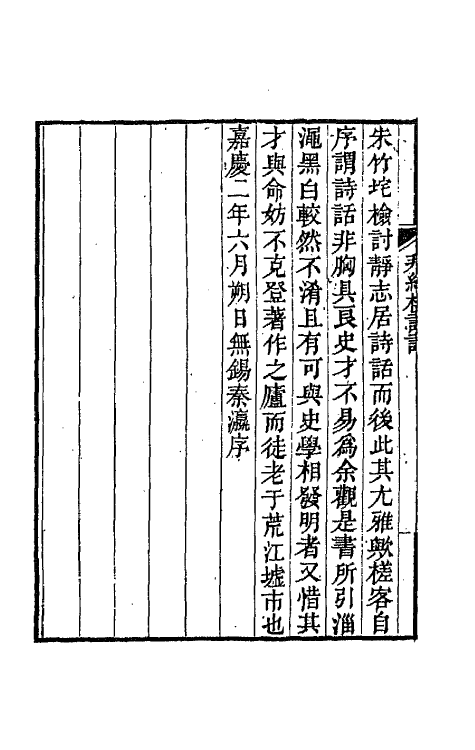 朱竹垞檢討靜志居詩話而後此其尤雅歟槎客自
序謂詩話非胸具良史才不易為余觀是書所引淄
澠黑白較然不淆且有可與史學相發明者又惜其
才與命妨不克登著作之廬而徒老于荒江墟市也
嘉慶二年六月朔日無錫秦瀛序